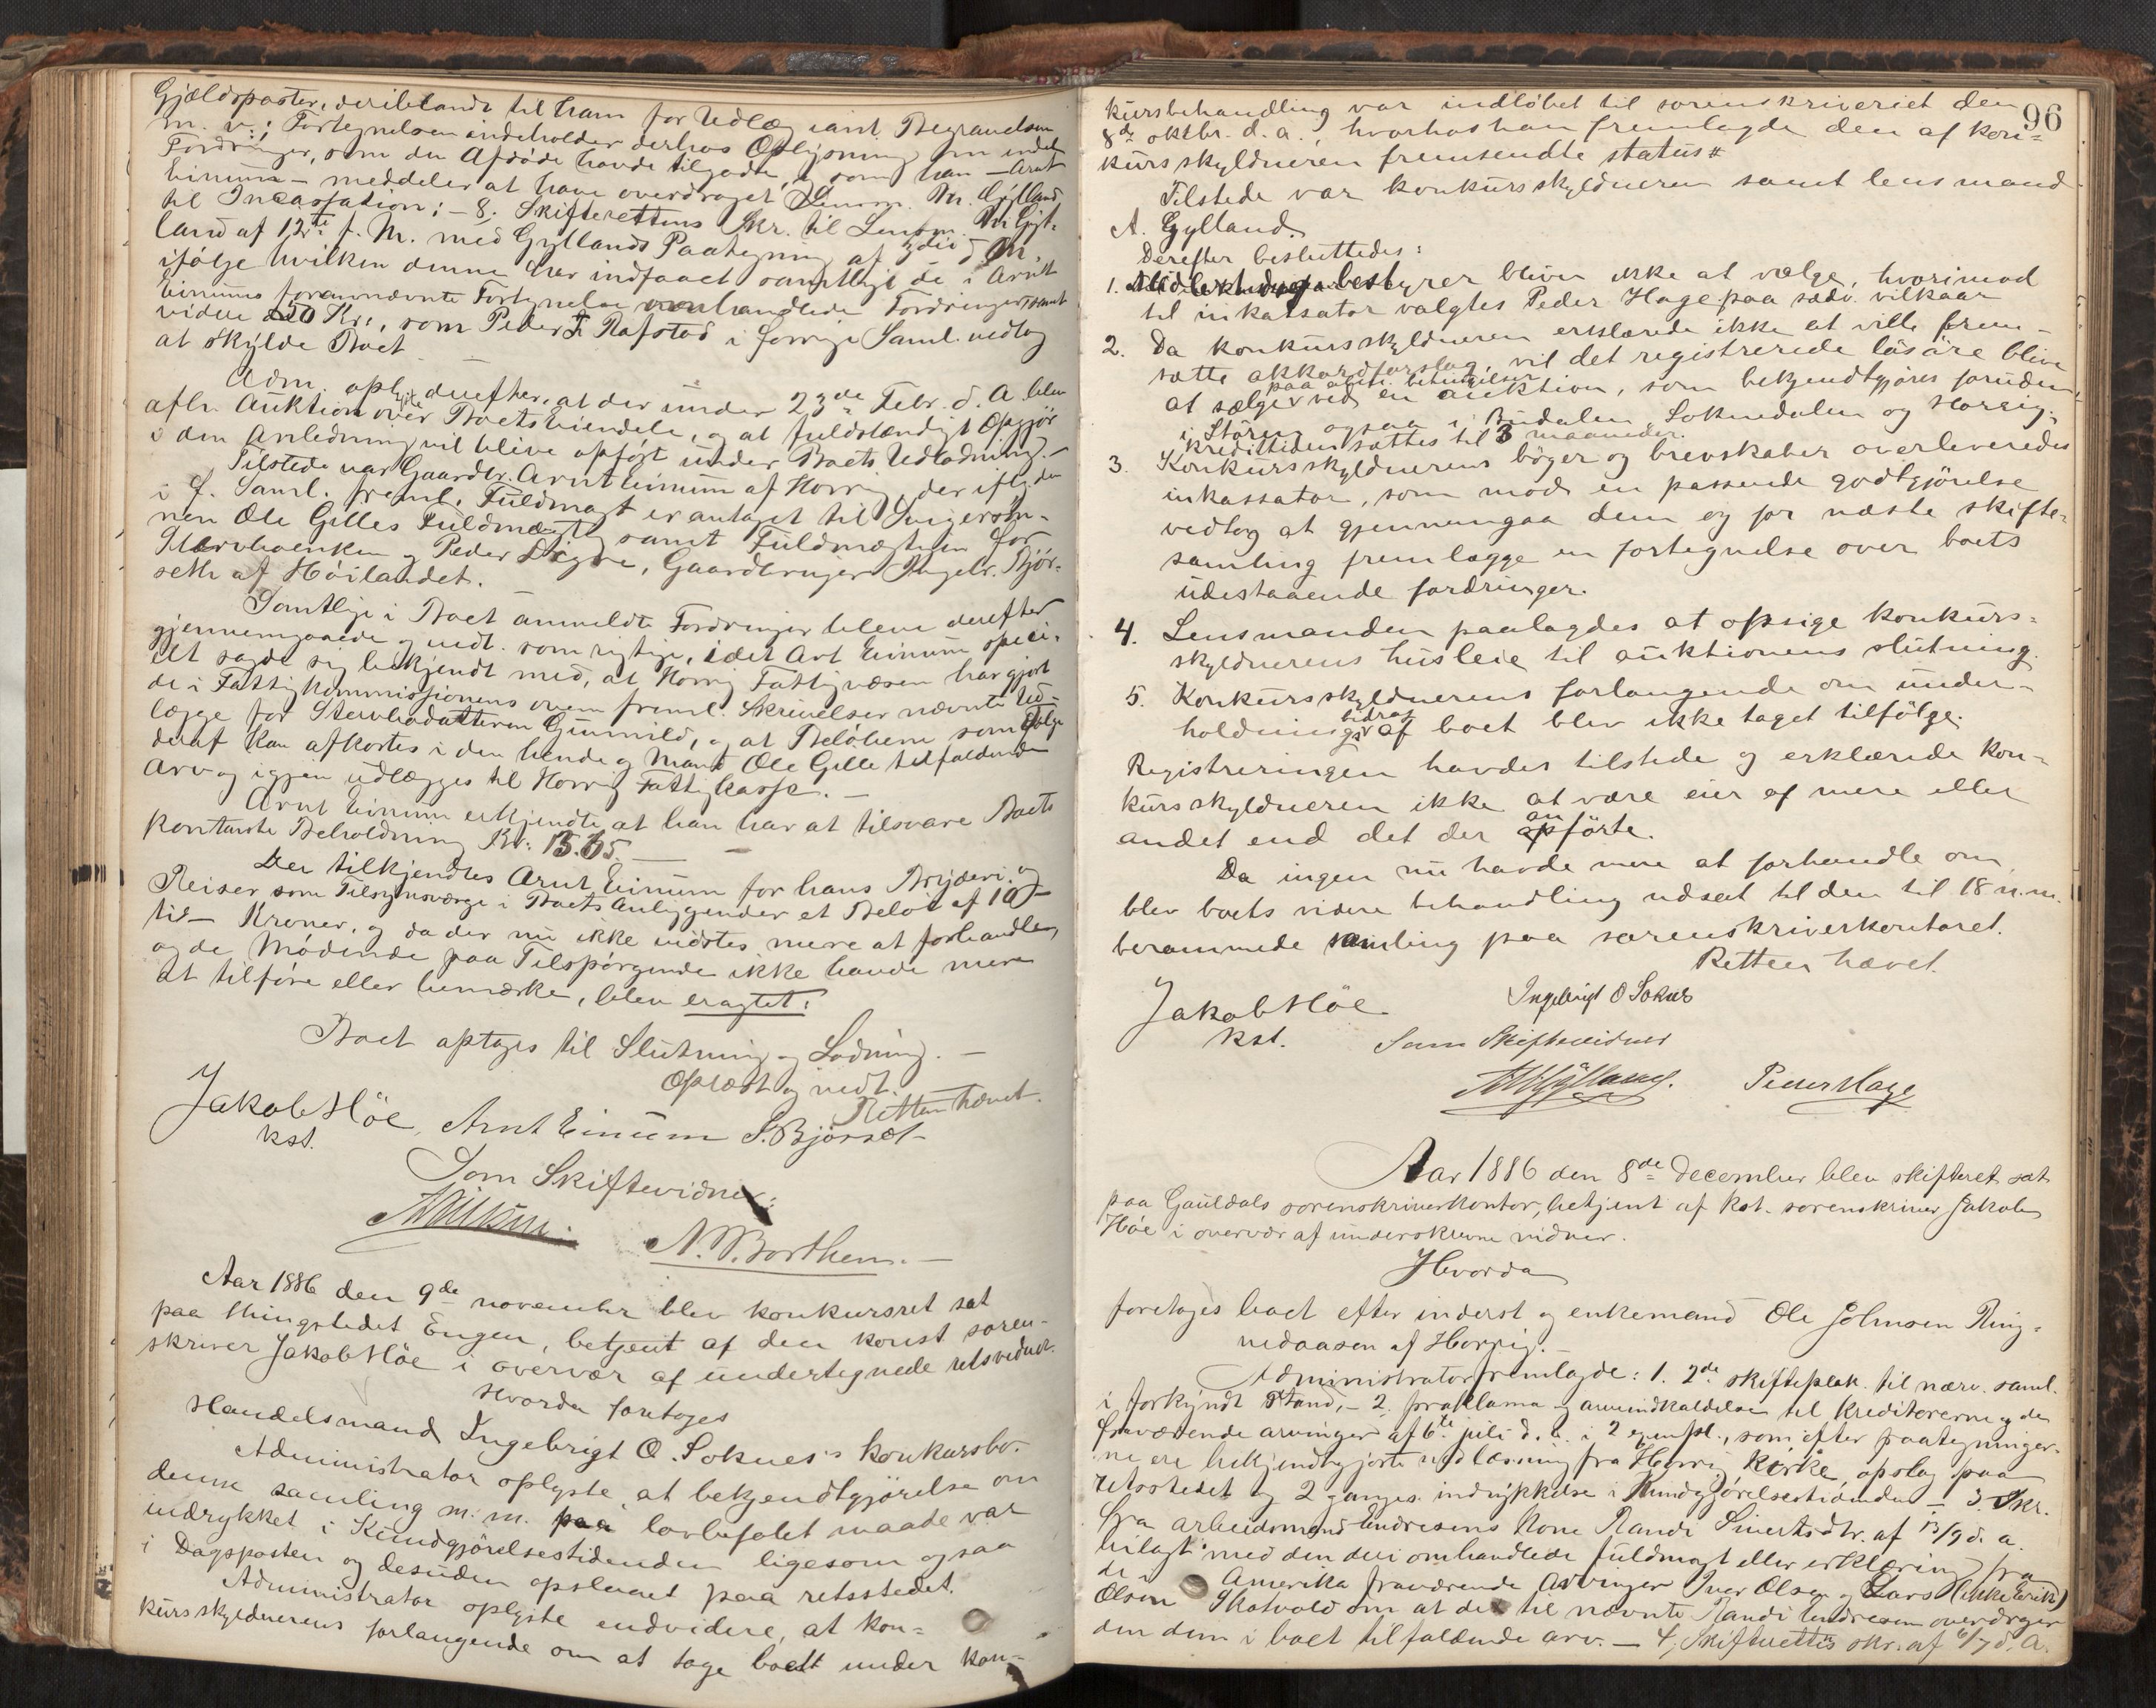 Gjældsposter, deriblandt til ham for Udlæg samt Begravelsen
m. v.; Fortegnelsen indeholder derhos Oplysning om endel
Fordringer, som den Afdøde havde tilgode, som han – Arnt
Einum – meddeler at have overdraget Lensm. M. Gylland
til Incassation; – 8. Skifterettens Skr. til Lensm. M. Gyl-
land af 12te f. M. med Gyllands Paategning af 3die d. M.
ifølge hvilken denne har indfaaet samtlige de i Arnt
Einums forannævnte Fortegnelse omhandlede Fordringer samt
videre de 50 Kr., som Peder F. Rafstad i forrige Saml. vedtog
at skylde Boet.
Adm. oplyste derefter, at der under 23de Febr. d. A. blev
afh. Auktion over Boets Eiendele, og at fuldstændigt Opgjør
i den Anledning vil blive opført under Boets Udlodning. –
Tilstede var Gaardbr. Arnt Einum af Horrig, der iflg. den
i f. Saml. freml. Fuldmagt er antaget til Svigersøn-
nen Ole Gilles Fuldmægtig samt Fuldmægtigen for
Stervboenken og Peder Digre, Gaardbruger Ingebr. Bjør-
seth af Høilandet.
Samtlige i Boet anmeldte Fordringer bleve derefter
gjennemgaaede og vedt. som rigtige, idet Arnt Einum speci-
elt sagde sig bekjendt med, at Horrig Fattigvæsen har gjort
de i Fattigkommissionens oven freml. Skrivelser nævnte Ud-
lægge for Stervbodatteren Gunnild, og at Beløbene som Følge
deraf kan afkortes i den hende og Mand Ole Gille tilfaldende
Arv og igjen udlægges til Horrig Fattigkasse. –
Arnt Einum erkjendte at han har at tilsvare Boets
kontante Beholdning Kr. 15.65. –
Der tilkjendtes Arnt Einum for hans Bryderi og
Reiser som Tilsynsværge i Boets Anliggender et Beløb af 10 –
ti – Kroner, og da der nu ikke vidstes mere at forhandle,
og de Mødende paa Tilspørgende ikke havde mere
at tilføre eller bemærke, blev eragtet:
Boet optages til Slutning og Lodning. –
Oplæst og vedt.
Retten hævet.
Jakob Höe, Arnt Einum I. Bjørset
kst.
Som Skiftevidner:
N. Borthen. –
Aar 1886 den 9de november blev konkursret sat
paa thingstedet Engen, betjent af den konst soren-
skriver Jakob Höe i overvær af undertegnede retsvidner.
Hvorda foretoges
Handelsmand Ingebrigt O. Soknes's konkursbo.
Administrator oplyste, at bekjendtgjörelse om
denne samling m. m. paa lovbefalet maade var
indrykket i Kundgjörelsestidenden ligesom ogsaa
i Dagsposten og desuden opslaaet paa retsstedet.
Administrator oplyste endvidere, at kon=
kursskyldnerens forlangende om at tage boet under kon=
96
kursbehandling var indløbet til sorenskriveriet den
8de oktbr. d. a., hvorhos han fremlagde den af kon=
kursskyldneren fremsendte status #
Tilstede var konkursskyldneren samt lensmand
A. Gylland.
Derefter besluttedes:
1. Midlertidig bestyrer bliver ikke at vælge, hvorimod
til inkassator valgtes Peder Hage paa sædv. vilkaar
2. Da konkursskyldneren erklærede ikke at ville frem-
sætte akkordforslag, vil det registrerede lösöre blive
paa alm. betingelser
at sælge ved en auktion, som bekjendtgjöres foruden
i Stören ogsaa i Budalen, Soknedalen og Horrig.
Kredittiden sættes til 3 maaneder.
3. Konkursskyldnerens böger og brevskaber overleveredes
inkassator, som mod en passende godtgjörelse
vedtog at gjennemgaa dem og for næste skifte-
samling fremlægge en fortegnelse over boets
udestaaende fordringer.
4. Lensmanden paalagdes at opsige konkurs=
skyldnerens husleie til auktionens slutning.
5. Konkursskyldnerens forlangende om under-
bidrag
holdnings af boet blev ikke taget tilfölge.
Registreringen havdes tilstede og erklærede kon=
kursskyldneren ikke at være eier af mere eller
an
andet end det der opförte.
Da ingen nu havde mere at forhandle om
blev boets videre behandling udsat til den til 18 n. m.
berammede samling paa sorenskriverkontoret.
Retten hævet.
Jakob Höe Ingebrigt O Soknes
kst. Som Skiftevidner
A Gylland. Peder Hage
Aar 1886 den 8de december blev skifteret sat
paa Gauldals sorenskriverkontor, betjent af kst. sorenskriver Jakob
Höe i overvær af underskrevne vidner.
Hvorda
foretoges boet efter inderst og enkemand Ole Johnsen Ring=
nedaasen af Horrig. –
Administrator fremlagde: 1. 2de skifteplak. til nærv. saml.
i forkyndt Stand, – 2. proklama og arveindkaldelse til kreditorerne og de
fraværende arvinger af 6te juli d. a. i 2 exempl., som efter paategninger-
ne ere bekjendtgjorte ved læsning fra Horrig kirke, opslag paa
retsstedet og 2 ganges indrykkelse i Kundgjörelsestidenden – 3. Skr.
fra arbeidsmand Endresens Kone Randi Sivertsdtr. af 13/9 d. a.
bilagt med den deri omhandlede fuldmagt eller erklæring fra
de i Amerika fraværende Arvinger Iver Olsen og Lars (ikke Erik)
Olsen Skatvold om at de til nævnte Randi Endresen overdrager
den dem i boet tilfaldende arv. – 4, Skifterettens skr. af 6/7 d. A.